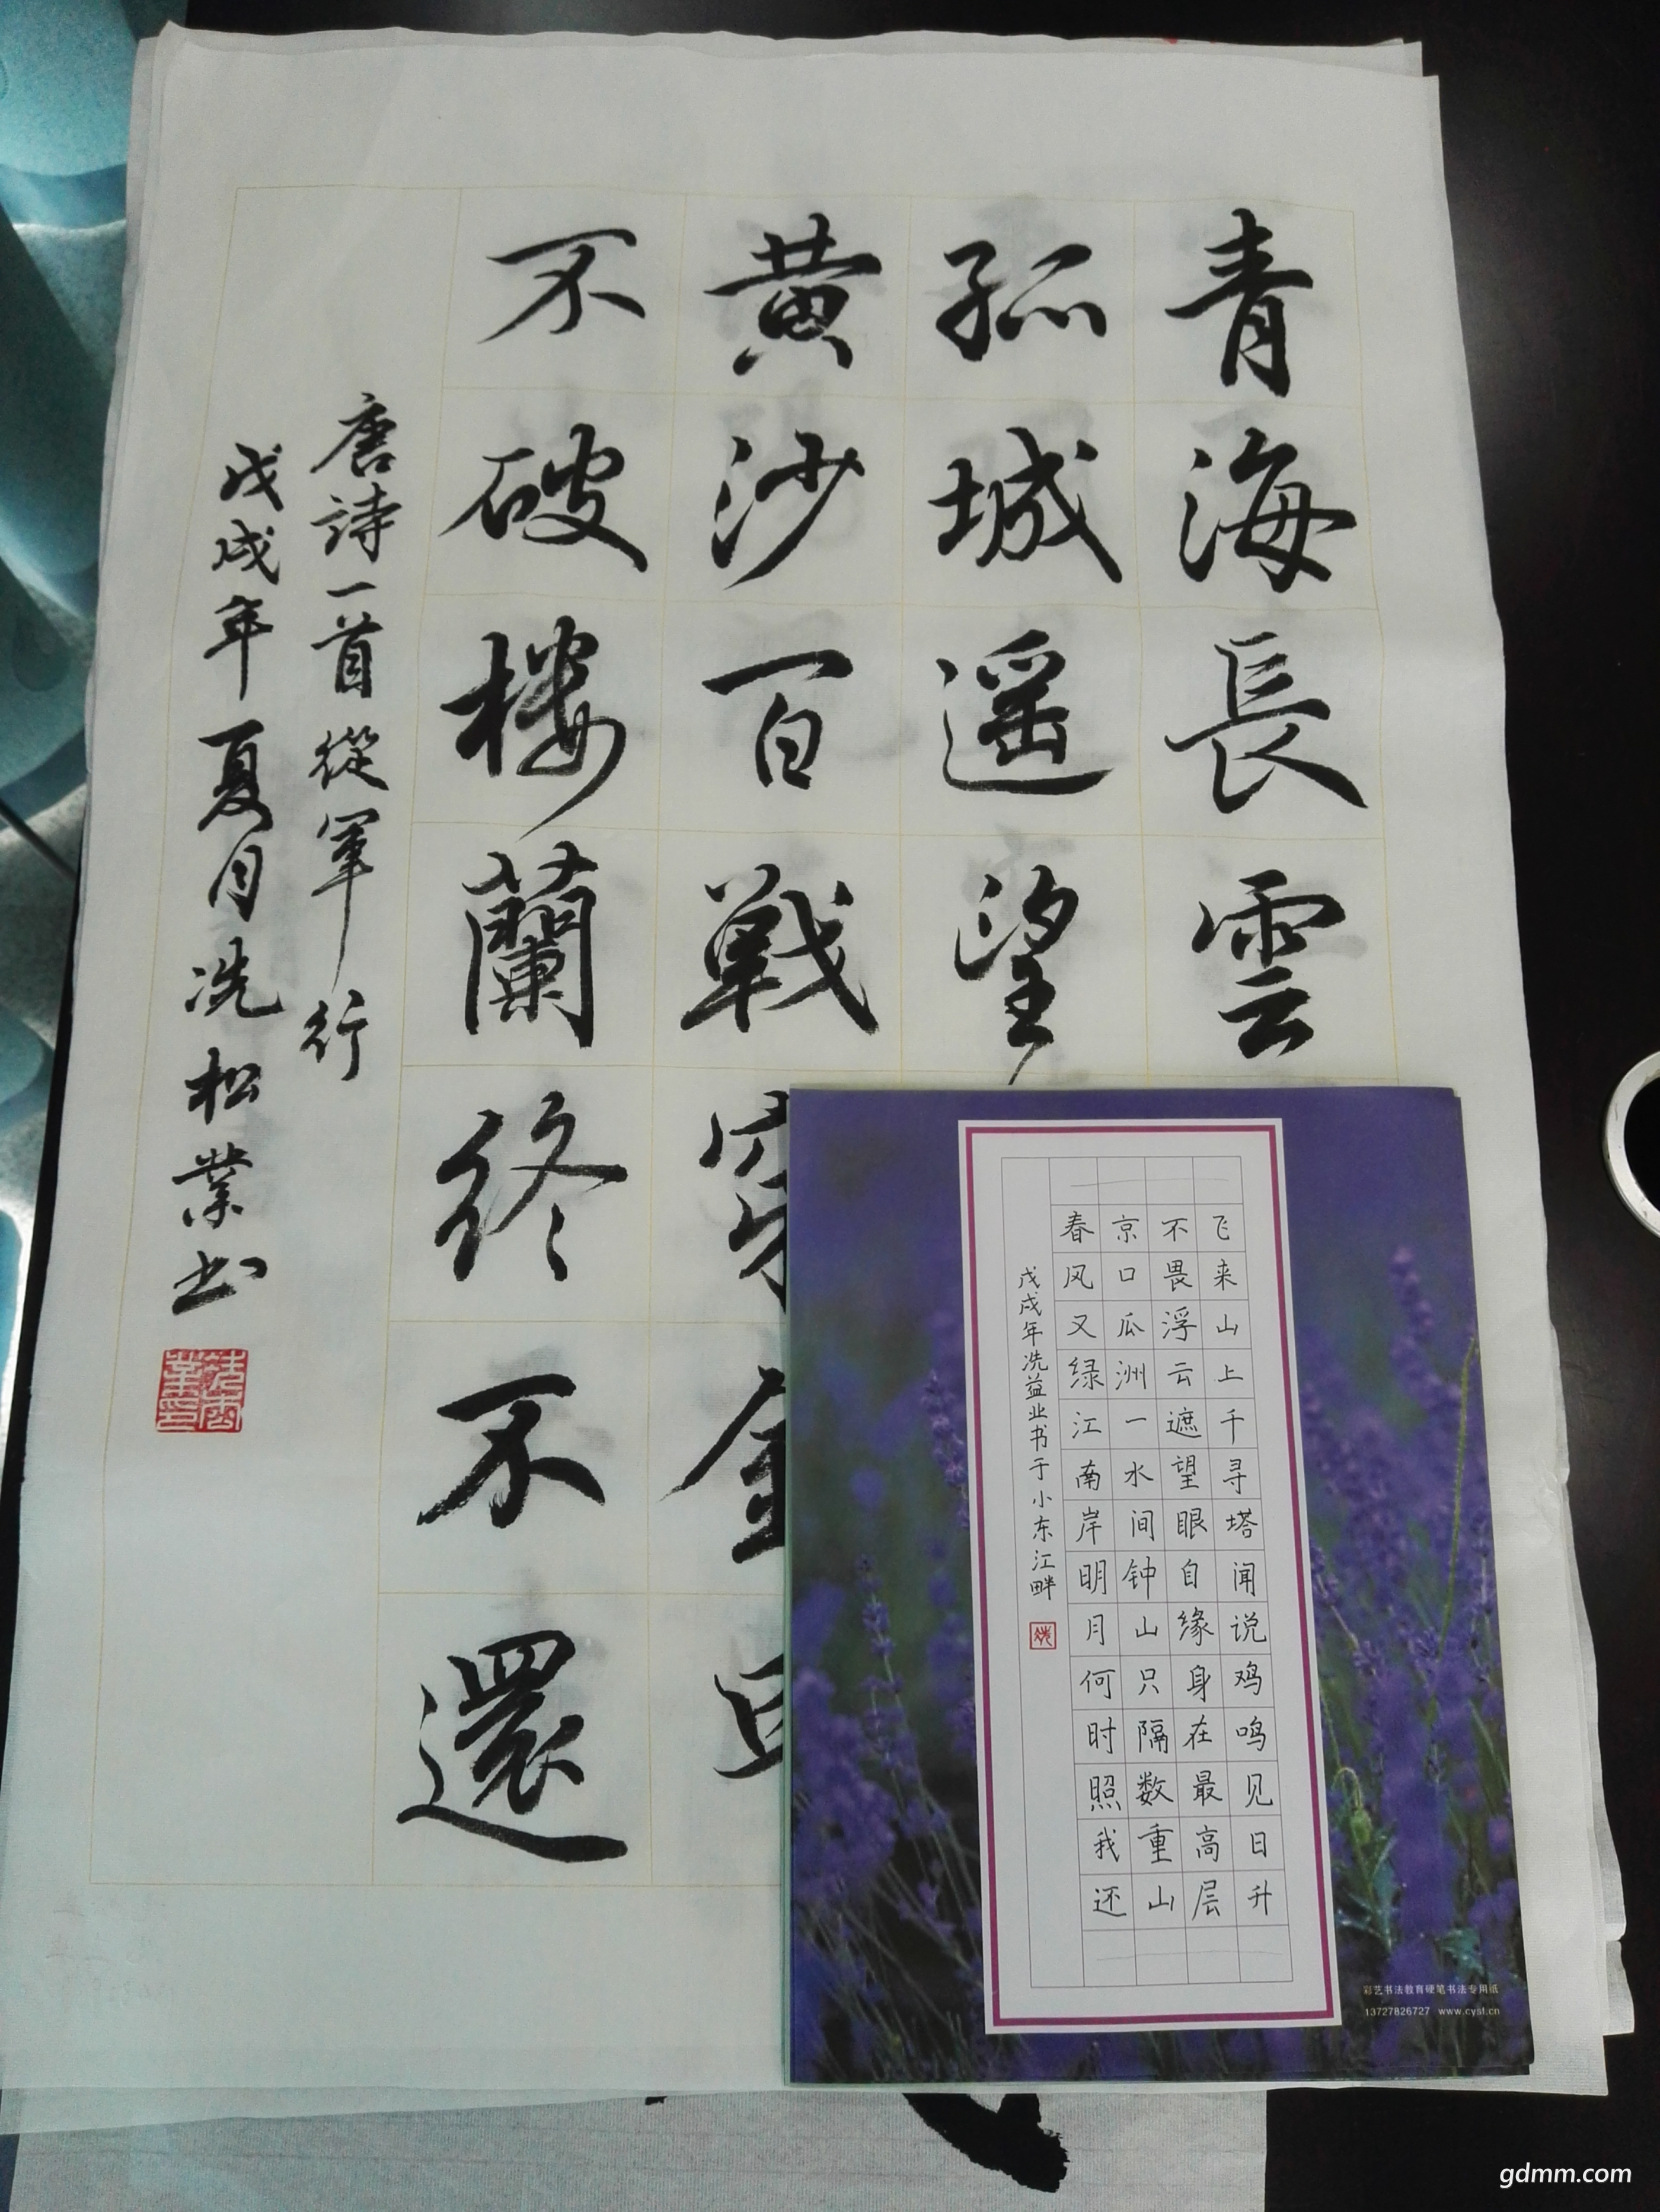 青海長雲
孤城遥望
黄沙百戰穿金
不破楼蘭終不還
唐詩一首從軍行
戊戌年夏月冼松業书
飞来山上千寻塔闻说鸡鸣见日升
不畏浮云遮望眼自缘身在最高层
京口瓜洲一水间钟山只隔数重山
春风又绿江南岸明月何时照我还
戊戌年冼益业书于小东江畔
彩艺书法教育硬笔书法专用纸
13727826727 www.cysf.cn
gdmm.com